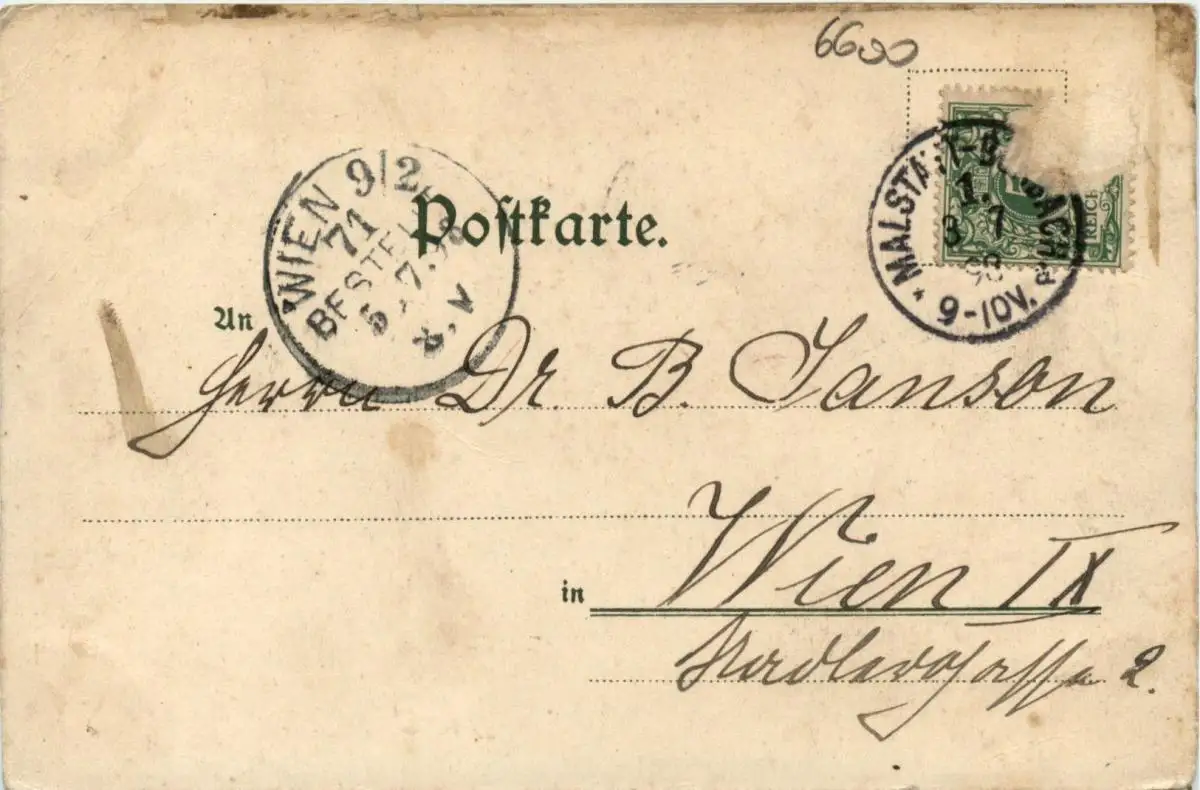 6690
MALSTATT-BURBACH
1.7
98
9-10V.
REICH
WIEN 9/2
71
BESTELLT
7.98
8.V
Postkarte.
An
Herrn Dr. B. Janson
in Wien IX
Nadlergasse 2.